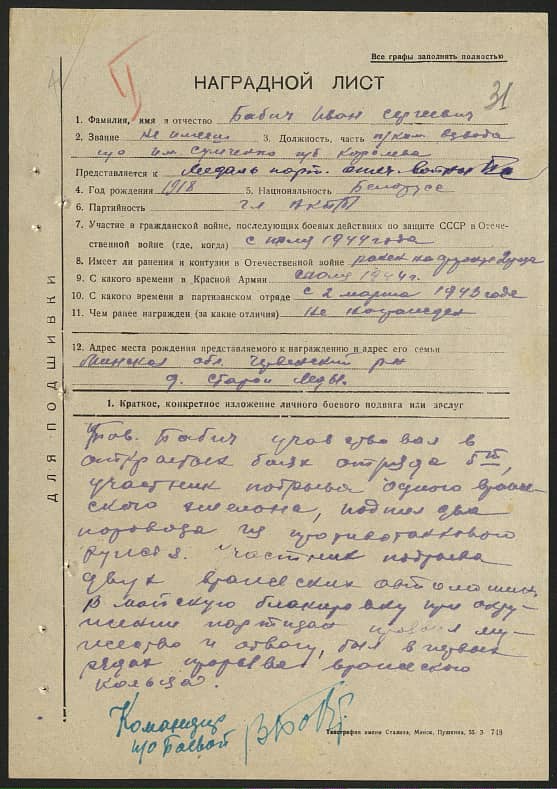 Все графы заполнять полностью
31
НАГРАДНОЙ ЛИСТ
1. Фамилия, имя и отчество Бабич Иван Сергеевич
2. Звание не имеет 3. Должность, часть п/ком. взвода
п/о им. Сунченко п/б Королева
Представляется к Медаль парт. отеч. войны
4. Год рождения 1918 5. Национальность Белорусс
6. Партийность чл ЛКСМ
7. Участие в гражданской войне, последующих боевых действиях по защите СССР в Отече-
ственной войне (где, когда) с июля 1944 года
8. Имеет ли ранения и контузии в Отечественной войне ранен на
9. С какого времени в Красной Армии с июля 1944 г.
10. С какого времени в партизанском отряде с 2 марта 1943 года
11. Чем ранее награжден (за какие отличия) Не награжден
12. Адрес места рождения представляемого к награждению и адрес его семьи
Минская обл. Червенский р-н
д. Старой
ДЛЯ ПОДШИВКИ
1. Краткое, конкретное изложение личного боевого подвига или заслуг
Тов. Бабич участвовал в
открытых боях отряда
участник подрыва одного враже-
ского эшелона, подбил два
паровоза из противотанкового
ружья. Участник подрыва
двух вражеских автомашин.
В майскую блокировку при окру-
жении партизан проявил му-
жество и отвагу, был в первых
рядах прорыва вражеского
кольца.
Командир
п/о Боевой
Типография имени Сталина, Минск, Пушкина, 55. З. 748